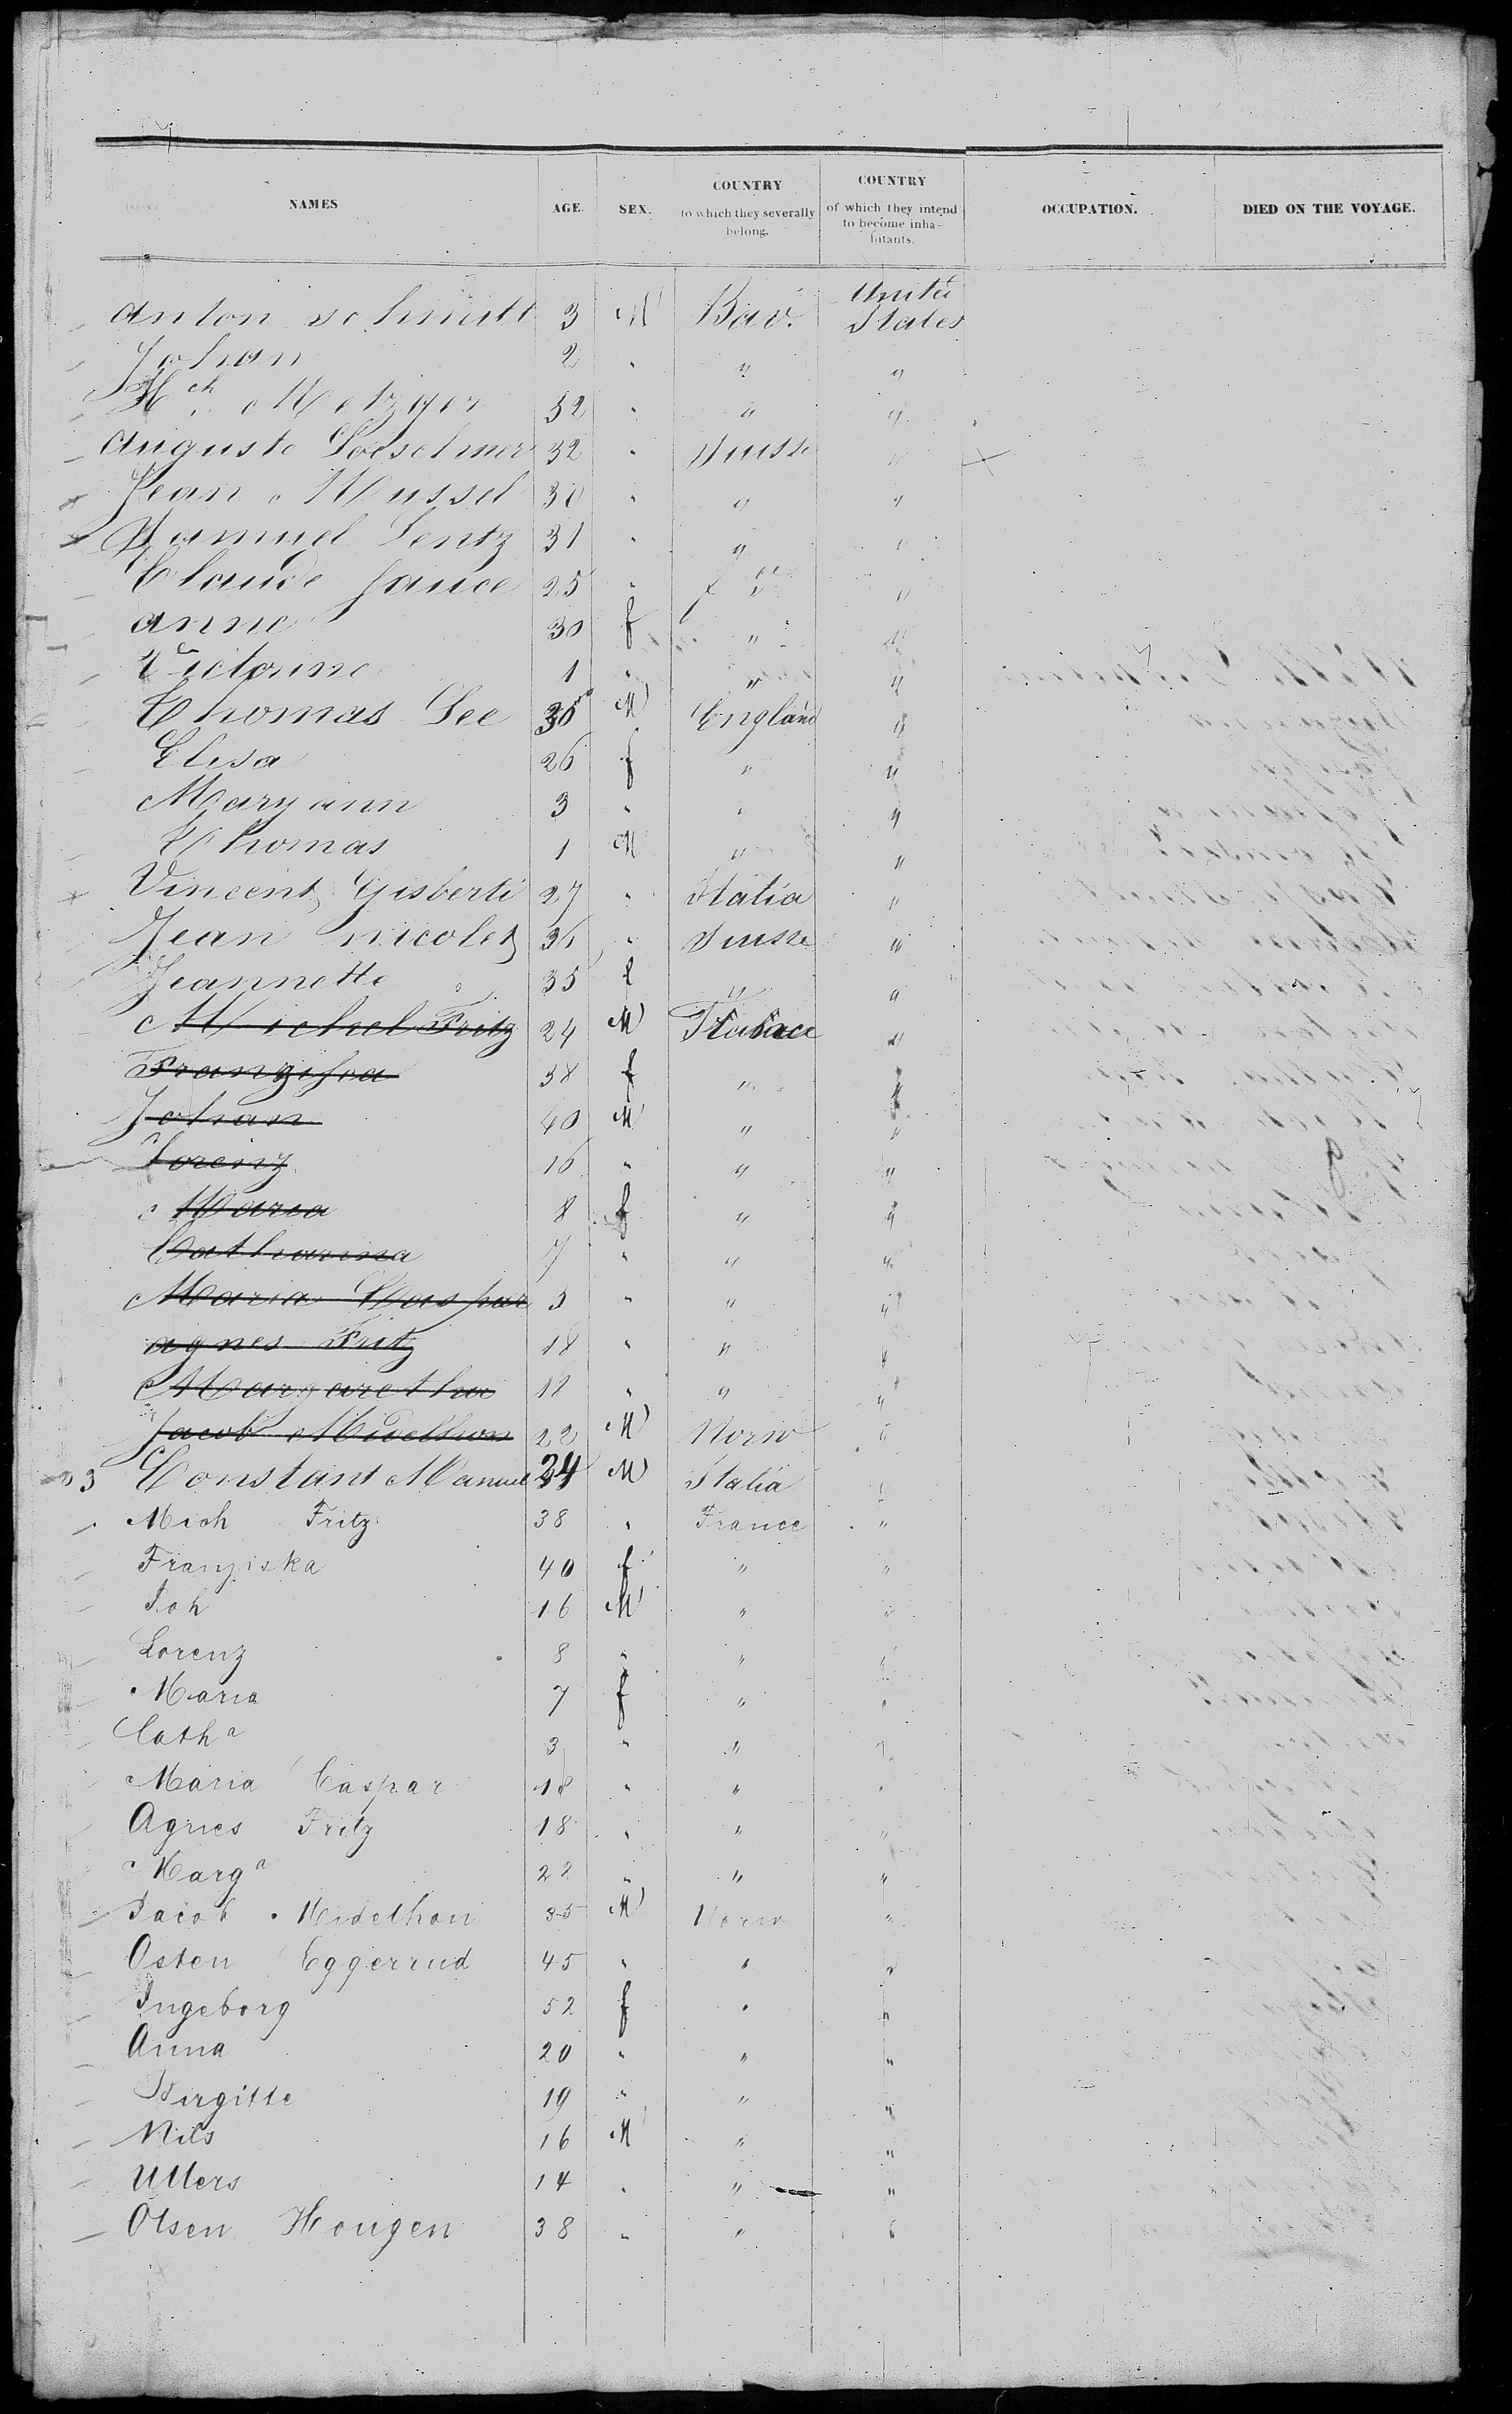 NAMES AGE. SEX. COUNTRY to which they severally belong. COUNTRY of which they intend to become inhabitants. OCCUPATION. DIED ON THE VOYAGE.
Anton Schmitt 3 M Bav. United States
Johan 2 " " "
Hch Metzger 32 " " "
Auguste 32 " Suisse " +
Jean Mussel 30 " " "
Samuel Lentz 31 " " "
Claude Jance 25 " " "
Anne 30 f " "
Victorine 1 " " "
Thomas Lee 30 M England "
Elisa 26 f " "
Mary ann 3 " " "
Thomas 1 M " "
Vincent Gisberti 27 " Italia "
Jean Nicolet 36 " Suisse "
Jeannette 35 f " "
Michel Fritz 24 M "
Franziska 38 f " "
Johan 40 M " "
Lorenz 16 " " "
Maria 8 f " "
Catharina 7 " " "
Maria Caspar 3 " " "
Agnes Fritz 18 " " "
Margaretha 18 " " "
Jacob Midelhon 22 M Norw "
3 Constant Manuel 24 M Italia "
Mich Fritz 38 " France "
Franziska 40 f " "
Joh 16 M " "
Lorenz 8 " " "
Maria 7 f " "
Catha 3 " " "
Maria Caspar 18 " " "
Agnes Fritz 18 " " "
Marga 22 " " "
Jacob Midelhon 35 M Norw "
Osten Eggerrud 45 " " "
Ingeborg 52 f " "
Anna 20 " " "
Birgitte 19 " " "
Nils 16 M " "
Ullers 14 " " "
Olsen Hougen 38 " " "